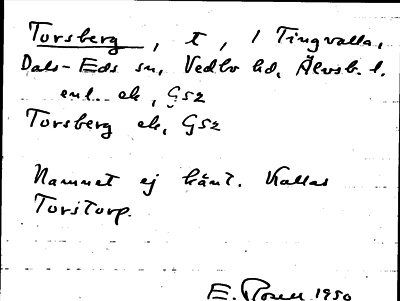 Torsberg, t, 1 Tingvalla,
Dals-Eds sn, Vedbo hd, Älvsb. l.
enl. ek, G52
Torsberg ek, G52
Namnet ej känt. Kallas
Torstorp.
E. Rosell 1950